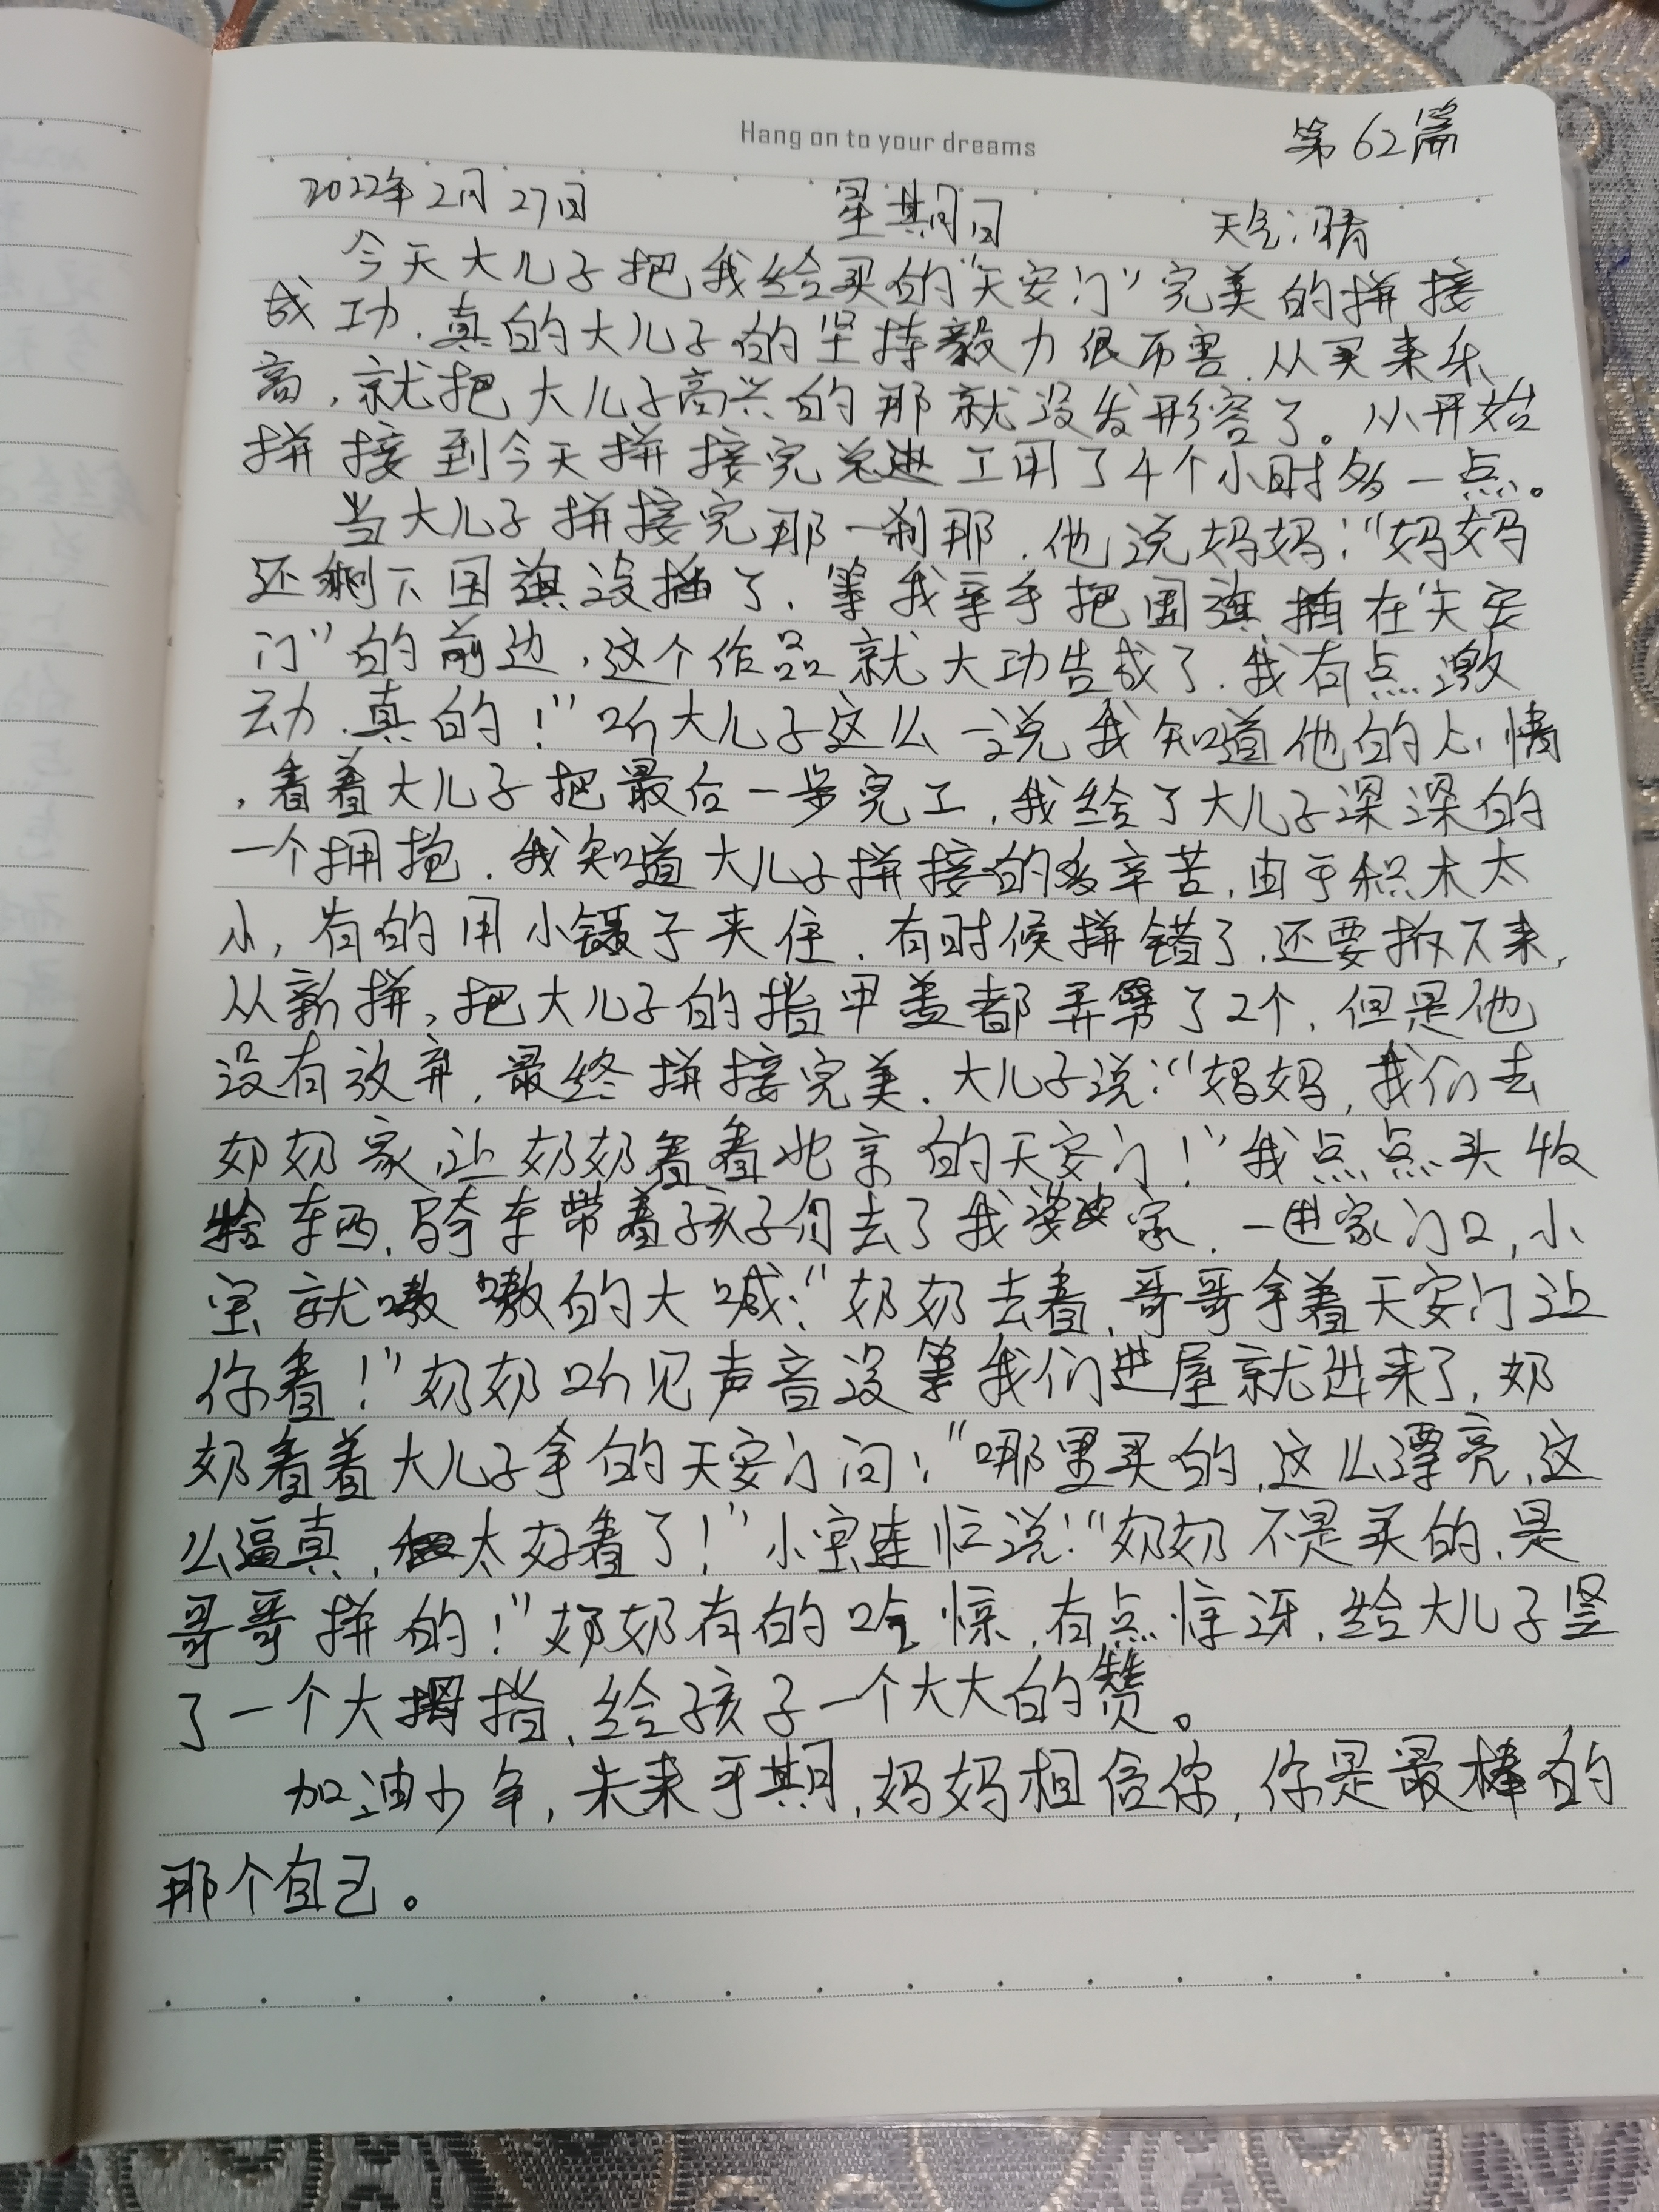 Hang on to your dreams
第62篇
2022年2月27日 星期日 天气:晴
今天大儿子把我给买的“天安门”完美的拼接
成功,真的大儿子的坚持毅力很厉害,从买来乐
高,就把大儿子高兴的那就没发形容了。从开始
拼接到今天拼接完总共工用了4个小时多一点。
当大儿子拼接完那一刹那,他说妈妈:“妈妈
还剩下国旗没插了,等我亲手把国旗插在“天安
门”的前边,这个作品就大功告成了,我有点激
动,真的!”听大儿子这么一说我知道他的心情
,看着大儿子把最后一步完工,我给了大儿子深深的
一个拥抱,我知道大儿子拼接的多辛苦,由于积木太
小,有的用小镊子夹住,有时候拼错了,还要拆下来,
从新拼,把大儿子的指甲盖都弄劈了2个,但是他
没有放弃,最终拼接完美。大儿子说:“妈妈,我们去
奶奶家,让奶奶看看北京的天安门!”我点点头收
拾东西,骑车带着孩子们去了我婆婆家,一进家门口,小
宝就嗷嗷的大喊:“奶奶去看,哥哥拿着天安门让
你看!”奶奶听见声音没等我们进屋就进来了,奶
奶看着大儿子拿的天安门问:“哪里买的,这么漂亮,这
么逼真,太好看了!”小宝连忙说:“奶奶不是买的,是
哥哥拼的!”奶奶有的吃惊,有点惊讶,给大儿子竖
了一个大拇指,给孩子一个大大的赞。
加油少年,未来可期,妈妈相信你,你是最棒的
那个自己。